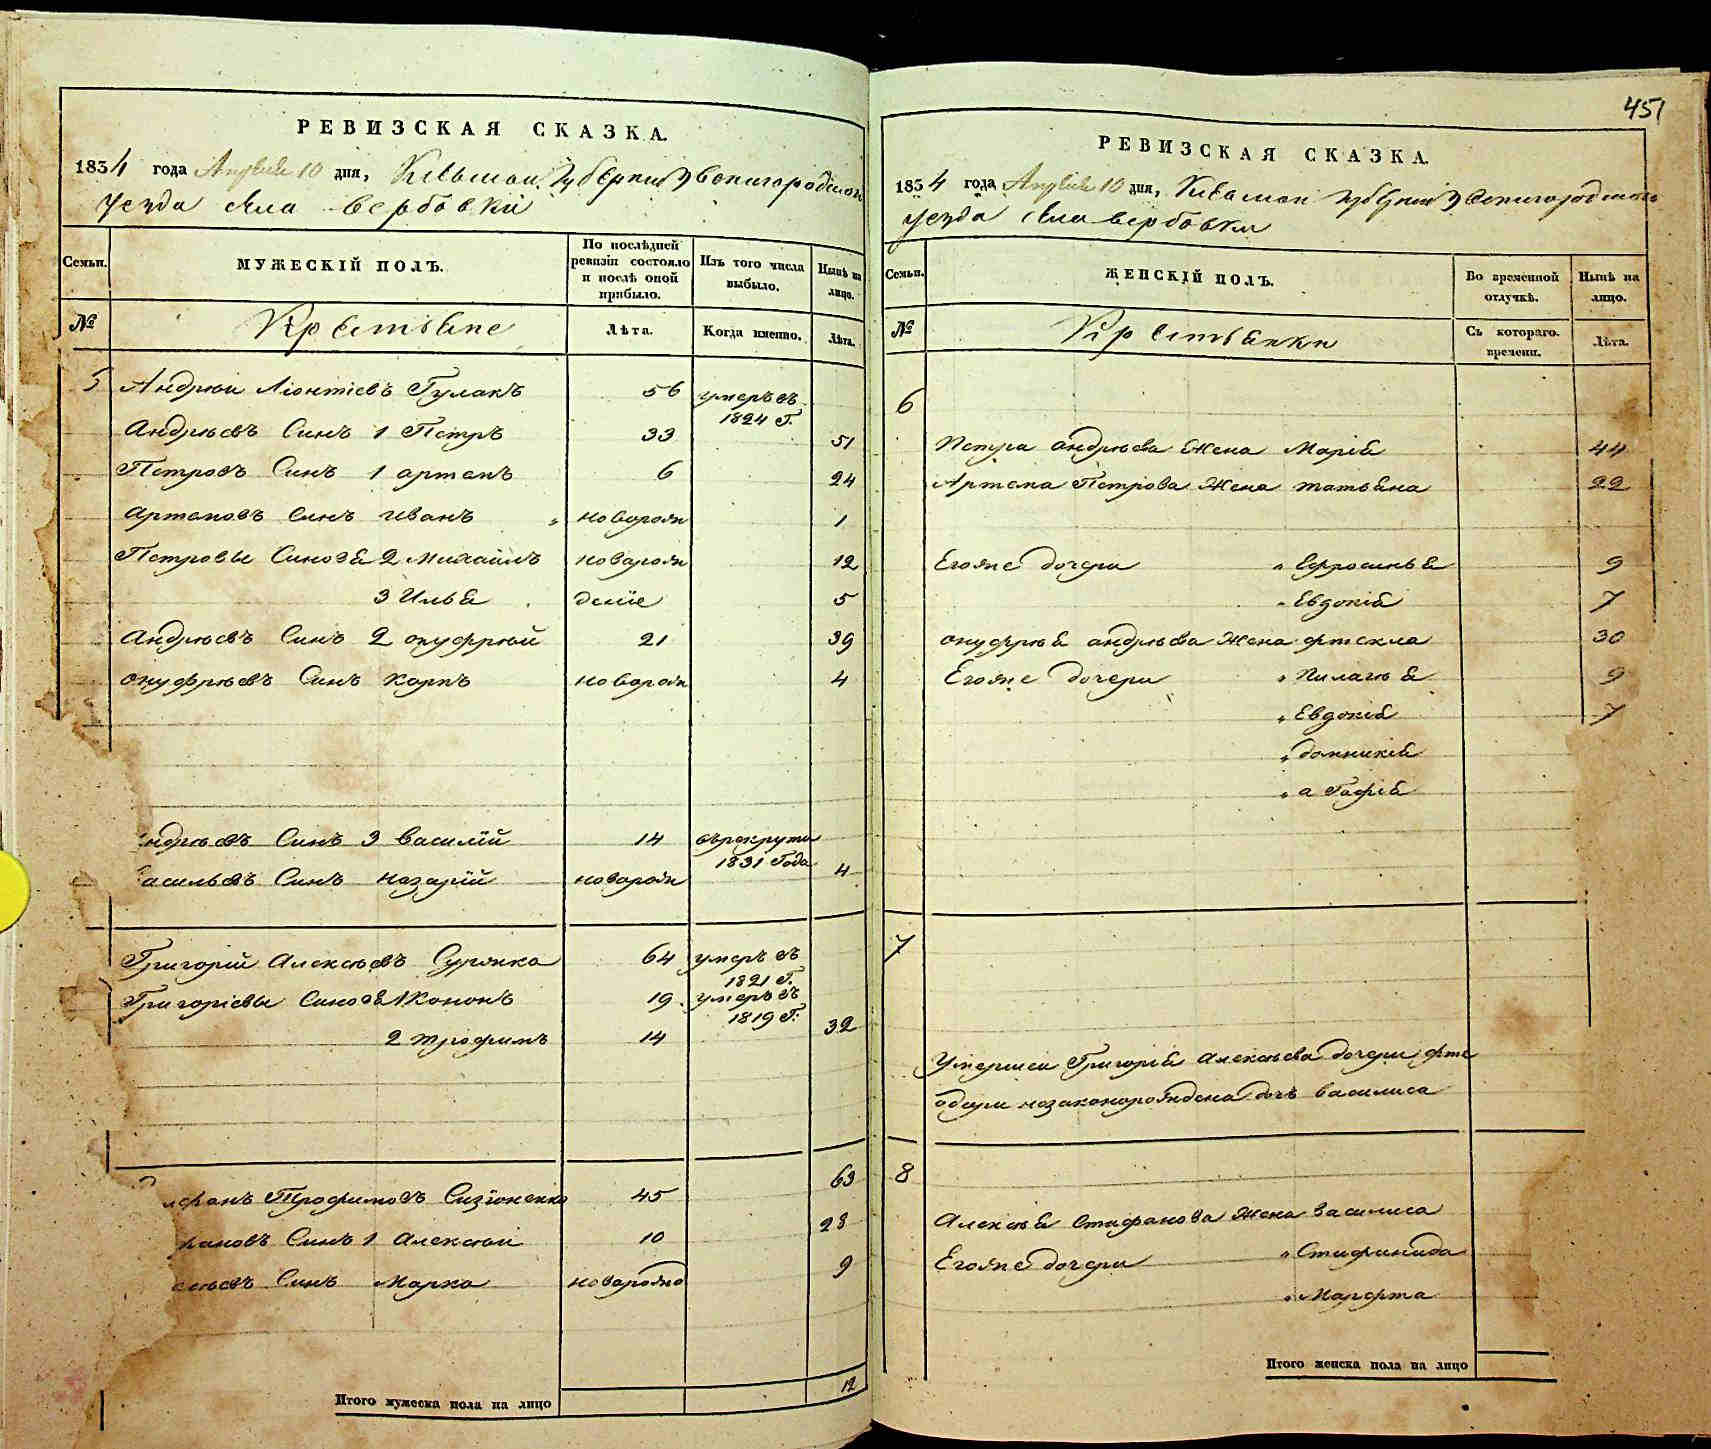 451
РЕВИЗСКАЯ СКАЗКА.
1834 года Апреля 10 дня, Киевской Губернии Звенигородской
уезда села Вербовки
Семьи.
МУЖЕСКІЙ ПОЛЪ.
По послѣдней ревизіи состояло и послѣ оной прибыло.
Изъ того числа выбыло.
Нынѣ на лицо.
№
Крестьяне
Лѣта.
Когда именно.
Лѣта.
5 Андрей Ліонтіевъ Гулакъ 56 умеръ въ 1824 Г.
Андреевъ Синъ 1 Петръ 33 51
Петровъ Синъ 1 артемъ 6 24
Артемовъ Синъ Иванъ новорож 1
Петровы Синовя 2 Михаилъ новорож 12
3 Илья деніе 5
Андреевъ Синъ 2 онуфрѣй 21 39
онуфрѣевъ Синъ Карпъ новорож 4
ндрѣевъ Синъ 3 Василій 14 върекруты 1831 Года
асильевъ Синъ Назарій новорож 4
Григорій Алексѣевъ Суржко 64 умеръ въ 1821 Г.
Григоріевы Синовя 1 Кононъ 19 умеръ въ 1819 Г.
2 трофимъ 14 32
ефанъ Трофимовъ 45 63
фановъ Синъ 1 Алексѣй 10 28
сѣевъ Синъ Марко новорожд 9
Итого мужеска пола на лицо 12
РЕВИЗСКАЯ СКАЗКА.
1834 года Апреля 10 дня, Киевской Губернии Звенигородской
уезда села Вербовки
Семьи.
ЖЕНСКІЙ ПОЛЪ.
Во временной отлучкѣ.
Нынѣ на лицо.
№
Крестьянки
Съ котораго времени.
Лѣта.
6
Петра андрѣева Жена Марія 44
Артема Петрова Жена татьяна 22
Егоже дочери Ефросинья 9
Евдокія 7
онуфрѣя андрѣева Жена фтекла 30
Егоже дочери Пилагѣя 9
Евдокія 7
домникія
а Гафія
7
Умершей Григорія Алексѣева дочери фте
одоры незаконорожденна дочъ Василиса
8
Алексѣя Стифанова Жена Василиса
Егоже дочери Стифанида
Марфта
Итого женска пола на лицо